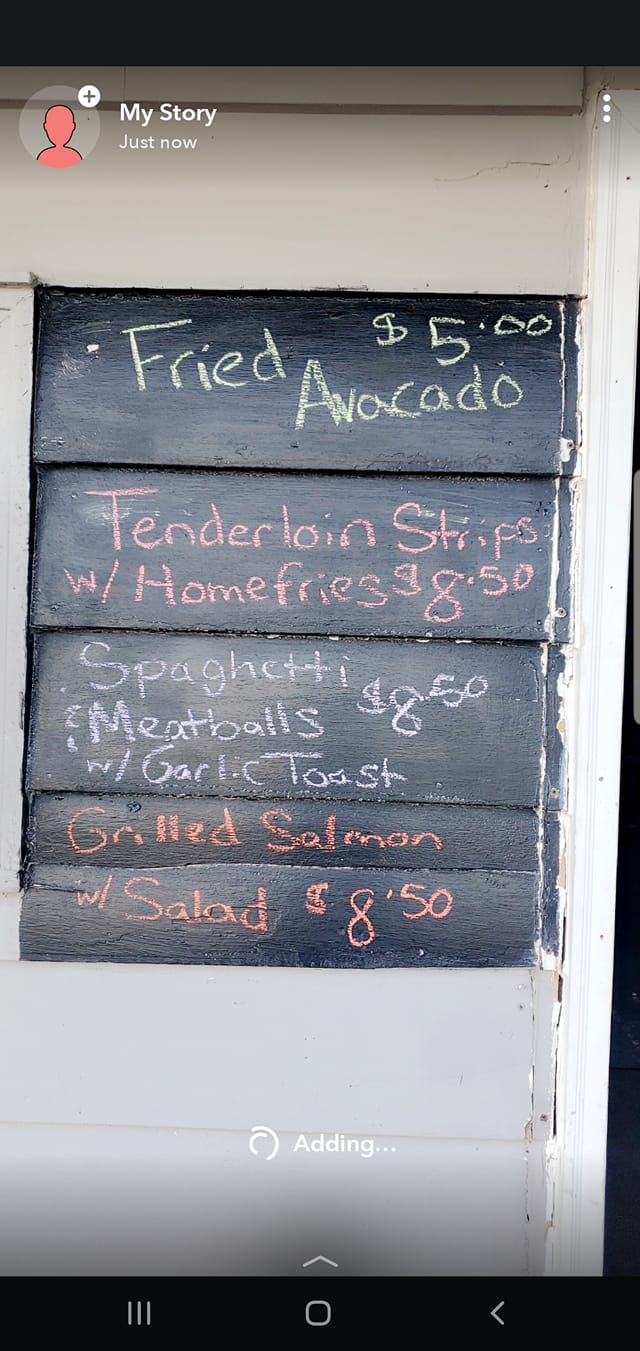 My Story
Just now
Fried $5.00
Avocado
Tenderloin Strips
w/ Homefries $8.50
Spaghetti
& Meatballs $8.50
w/ Garlic Toast
Grilled Salmon
w/ Salad $8.50
Adding...